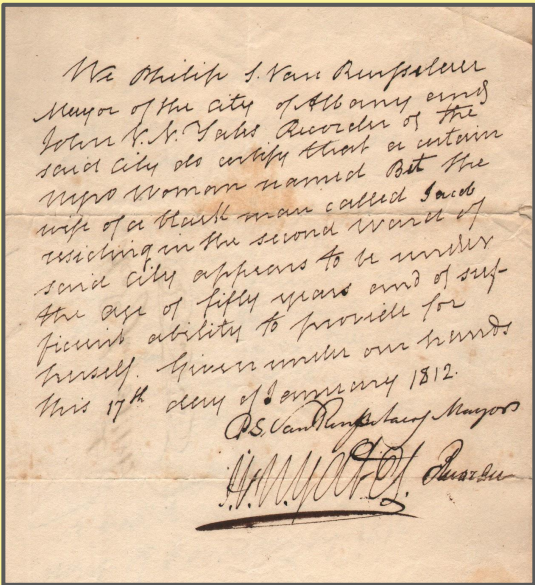 We Philip S. Van Rensselaer
Mayor of the City of Albany and
John V. N. Yates Recorder of the
said City do certify that a certain
Negro Woman named Bet the
wife of a black man called Jacob
residing in the second ward of
said City appears to be under
the age of fifty years and of suf-
ficient ability to provide for
herself. Given under our hands
this 17th day of January 1812.
P.S. Van Rensselaer Mayor
J.V.N. Yates. Recorder